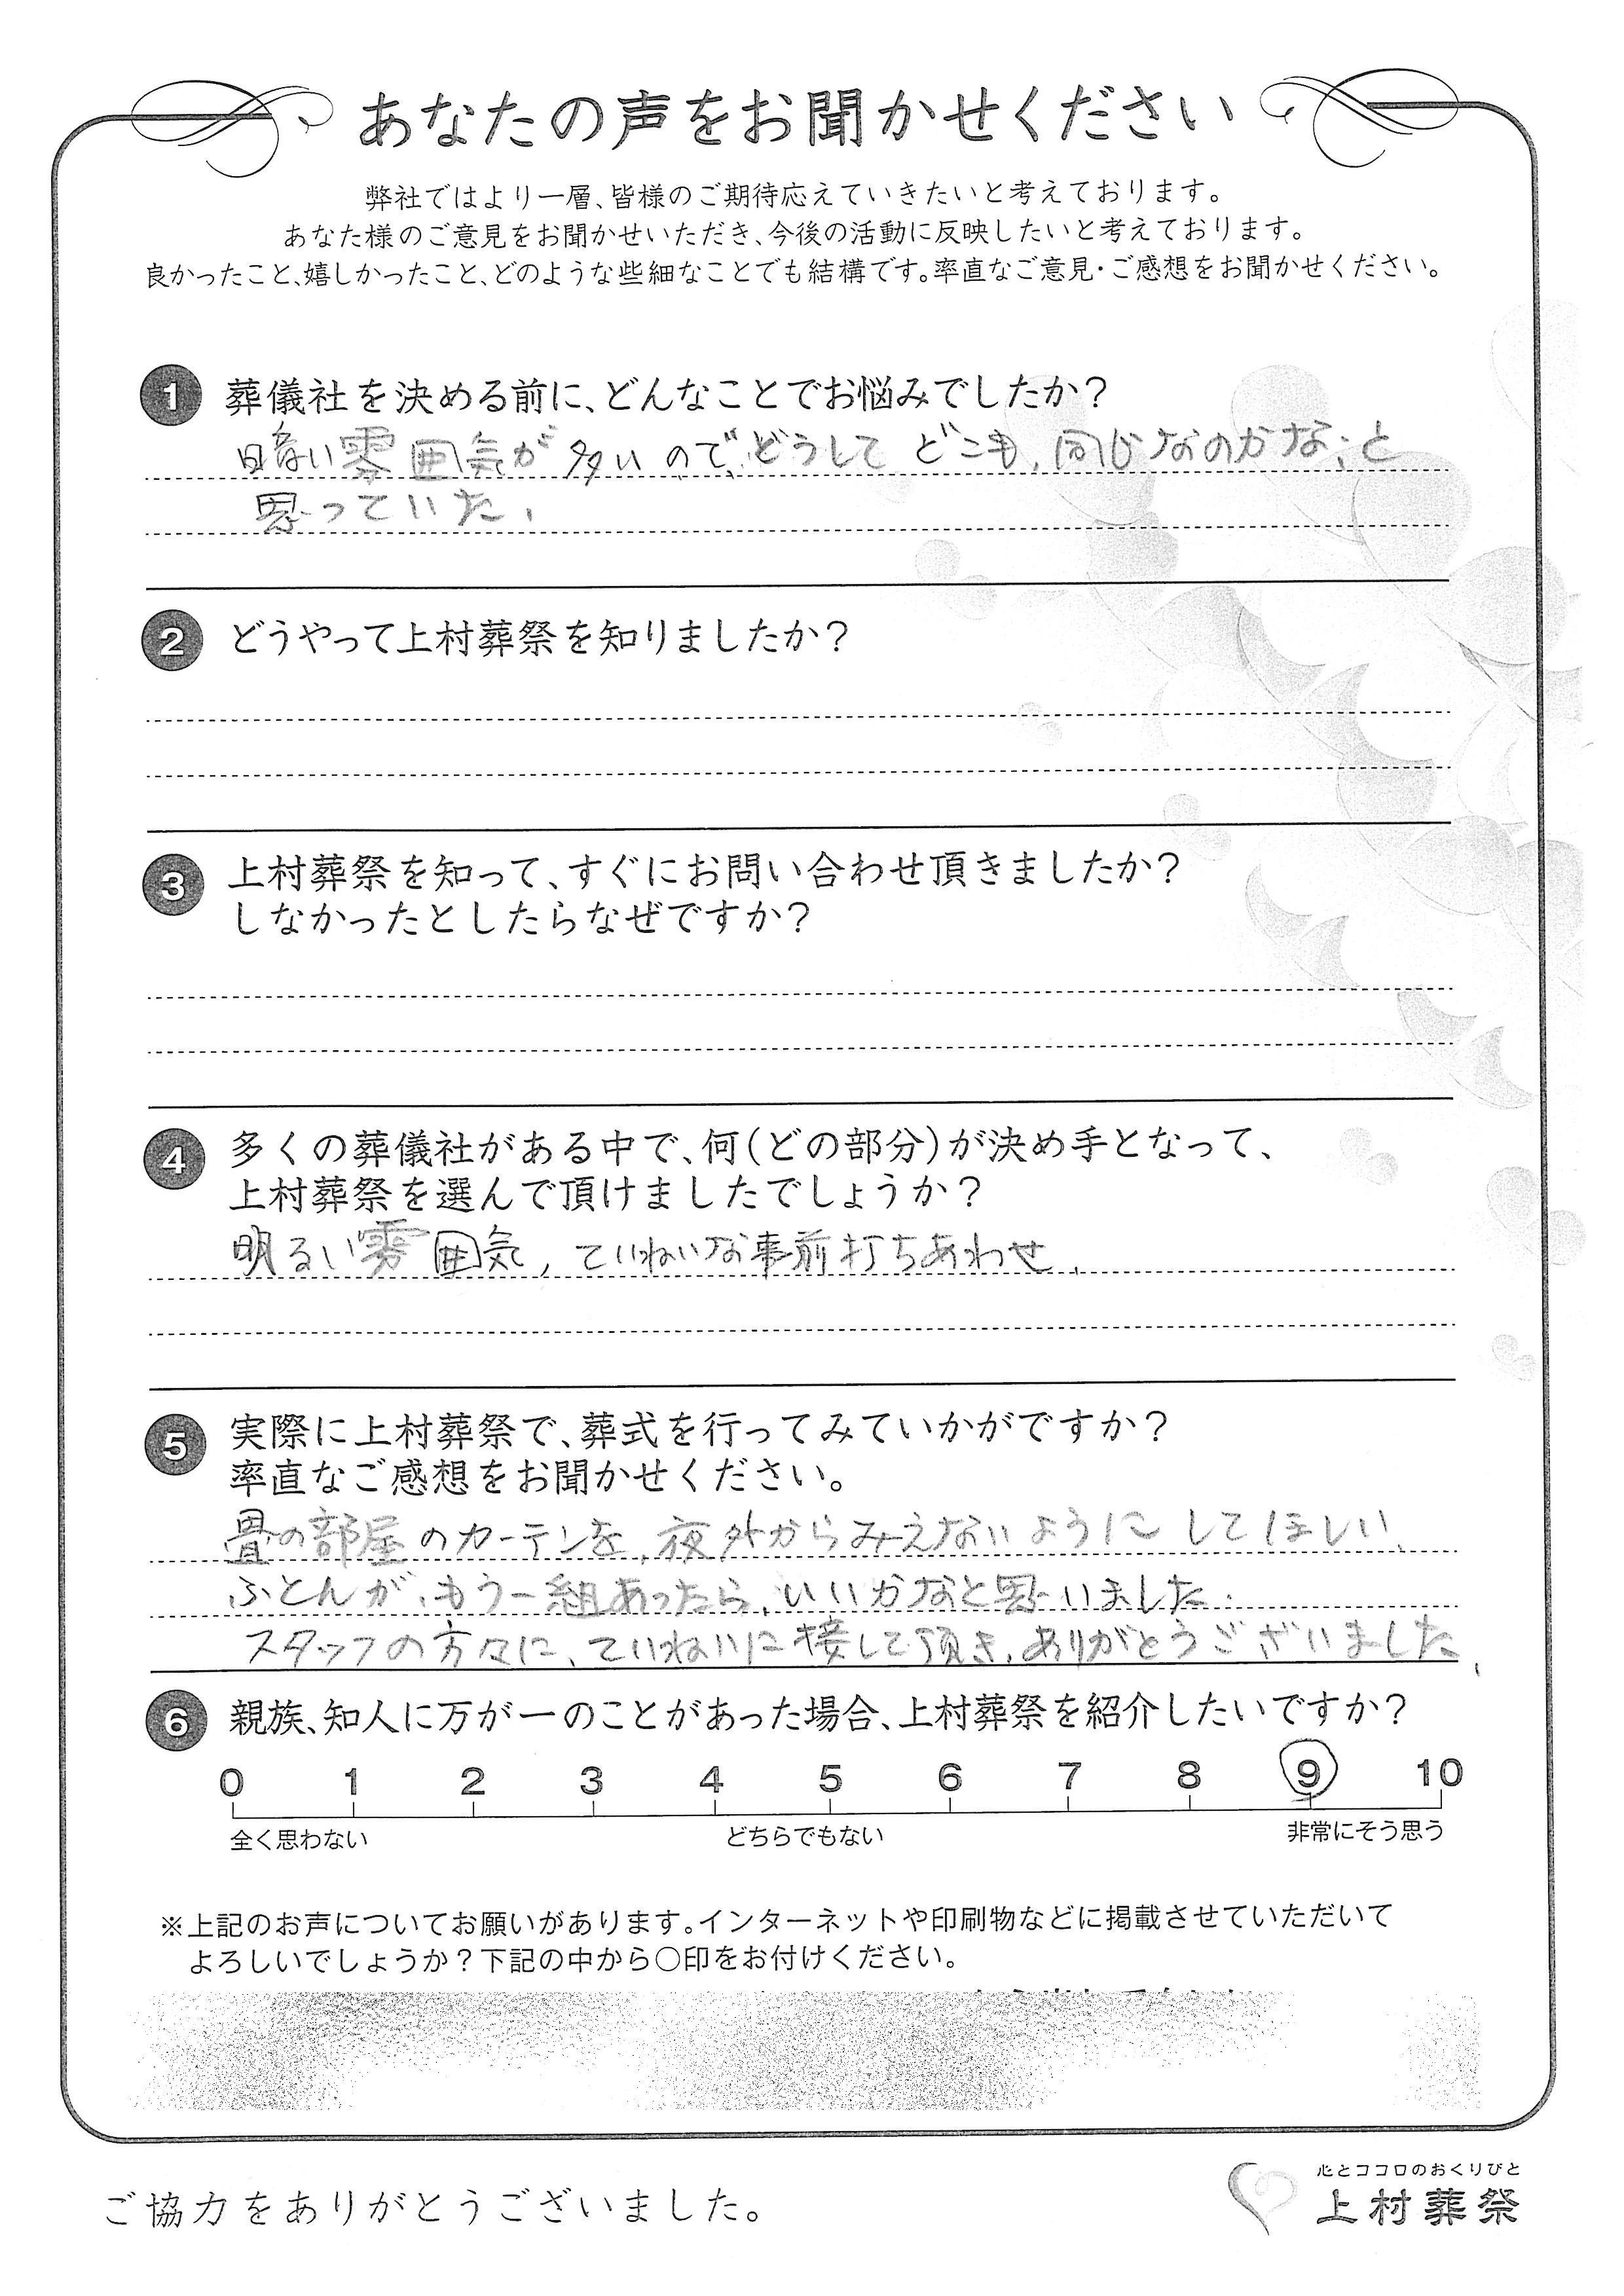 あなたの声をお聞かせください
弊社ではより一層、皆様のご期待応えていきたいと考えております。
あなた様のご意見をお聞かせいただき、今後の活動に反映したいと考えております。
良かったこと、嬉しかったこと、どのような些細なことでも結構です。率直なご意見・ご感想をお聞かせください。
1 葬儀社を決める前に、どんなことでお悩みでしたか?
暗い雰囲気が多いので、どうしてどこも、同じなのかな、と
思っていた、
2 どうやって上村葬祭を知りましたか?
3 上村葬祭を知って、すぐにお問い合わせ頂きましたか?
しなかったとしたらなぜですか?
4 多くの葬儀社がある中で、何(どの部分)が決め手となって、
上村葬祭を選んで頂けましたでしょうか?
明るい雰囲気、ていねいな事前打ちあわせ、
5 実際に上村葬祭で、葬式を行ってみていかがですか?
率直なご感想をお聞かせください。
畳の部屋のカーテンを、夜外からみえないようにしてほしい、
ふとんが、もう一組あったら、いいかなと思いました、
スタッフの方々に、ていねいに接して頂き、ありがとうございました、
6 親族、知人に万が一のことがあった場合、上村葬祭を紹介したいですか?
0 1 2 3 4 5 6 7 8 9 10
全く思わない どちらでもない 非常にそう思う
※上記のお声についてお願いがあります。インターネットや印刷物などに掲載させていただいて
よろしいでしょうか?下記の中から○印をお付けください。
ご協力をありがとうございました。
心とココロのおくりびと
上村葬祭